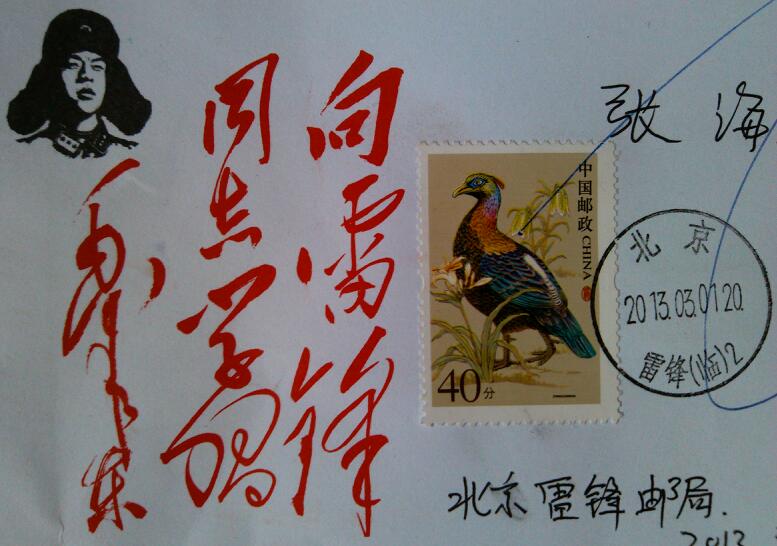 向雷锋
同志学习
毛泽东
张海
中国邮政 CHINA
40分
北京
2013.03.01 20.
雷锋(临)2
北京雷锋邮局.
2013